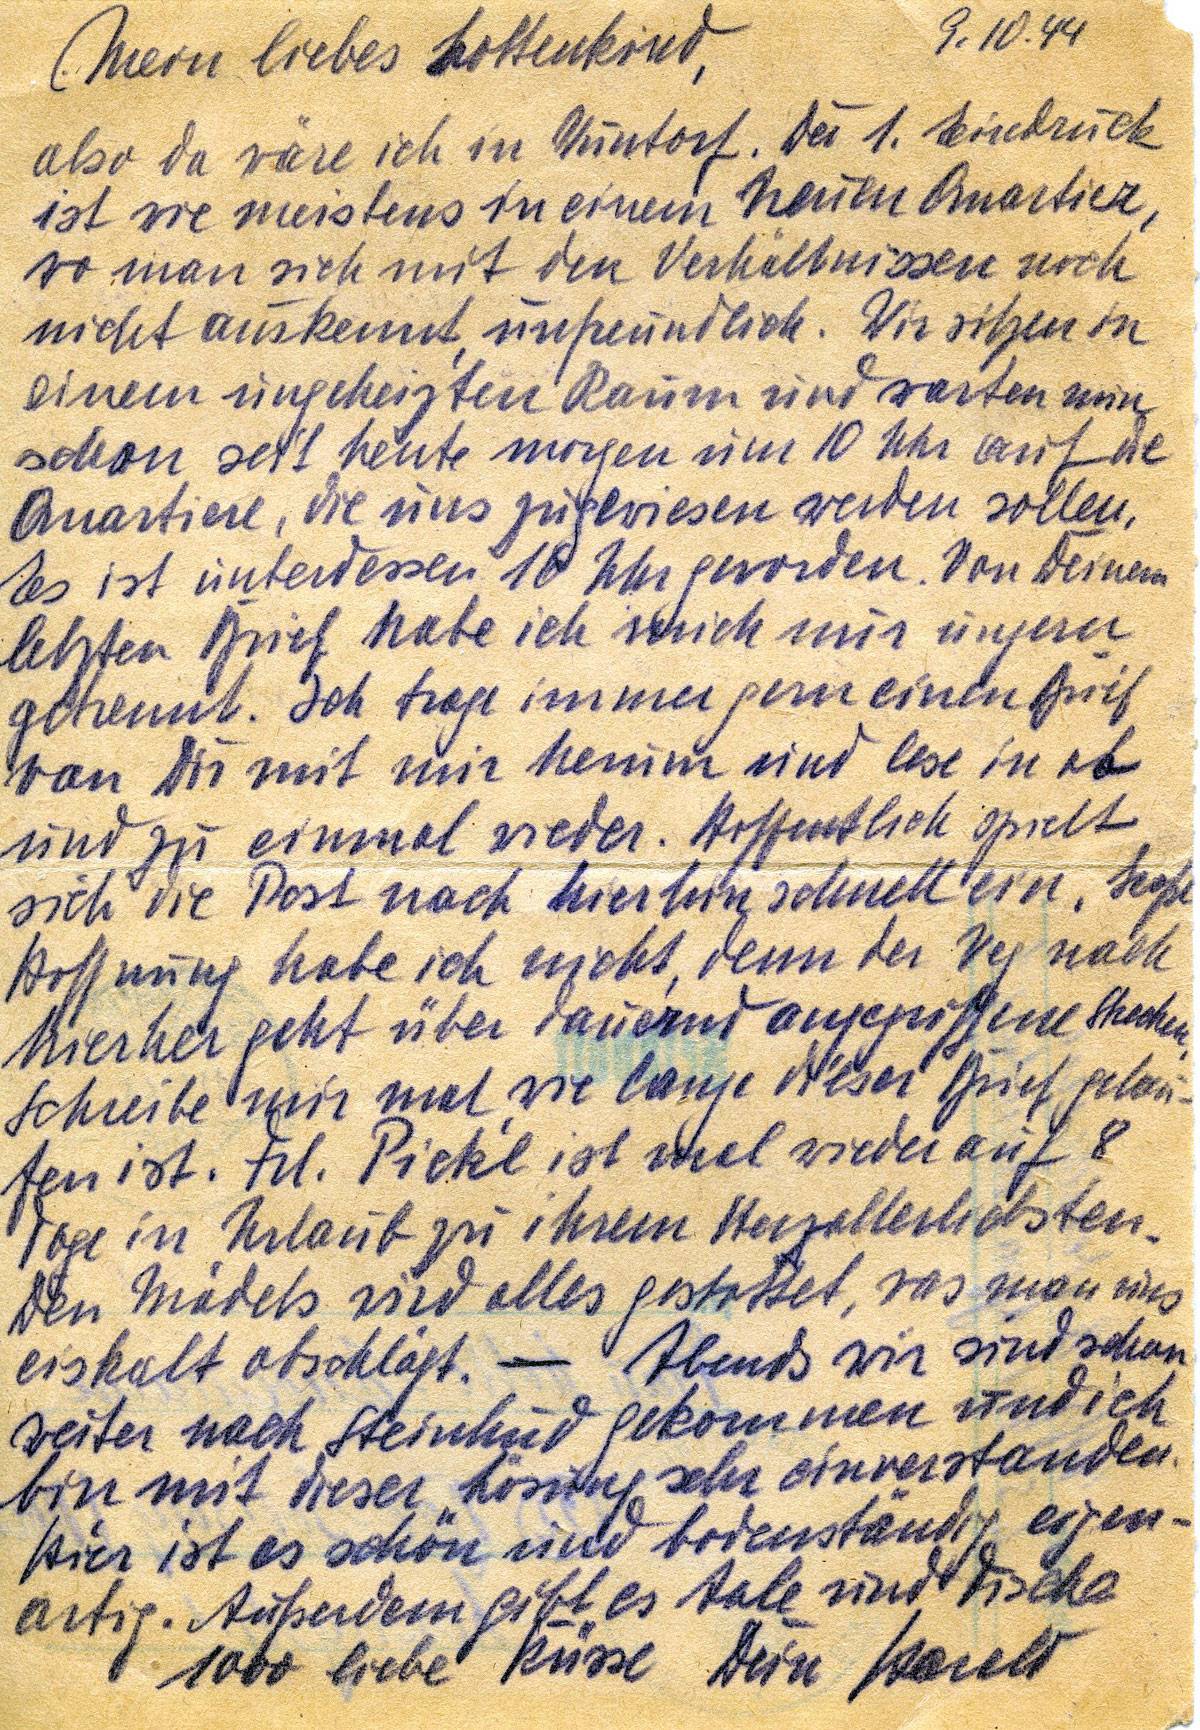 9.10.44
Mein liebes Lottenkind,
also da wäre ich in Wuntorf. Der 1. Eindruck
ist wie meistens in einem neuen Quartier,
wo man sich mit den Verhältnissen noch
nicht auskennt, unfreundlich. Wir sitzen in
einem ungeheizten Raum und warten nun
schon seit heute morgen um 10 Uhr auf die
Quartiere, die uns zugewiesen werden sollen.
Es ist unterdessen 16 Uhr geworden. Von Deinem
letzten Brief habe ich mich nur ungern
getrennt. Ich trage immer gern einen Brief
von Dir mit mir herum und lese in ab
und zu einmal wieder. Hoffentlich spielt
sich die Post nach hierhin schnell ein.
Hoffnung habe ich nicht, denn der Weg nach
hierher geht über dauernd angegriffene Strecken.
Schreibe mir mal, wie lange dieser Brief gelau-
fen ist. Frl. Pickl ist mal wieder auf 8
Tage in Urlaub zu ihrem Herzallerliebsten.
Den Mädels wird alles gestattet, was man uns
eiskalt abschlägt. — Abends wir sind schon
weiter nach Steinhud gekommen und ich
bin mit dieser Lösung sehr einverstanden.
Hier ist es schön und bodenständig eigen-
artig. Außerdem gibt es Aale und Fische
1000 liebe Küsse Dein Harald